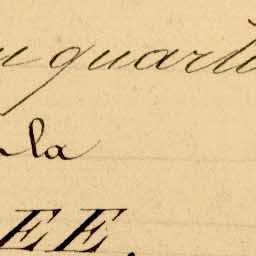 quarto
la
EE.